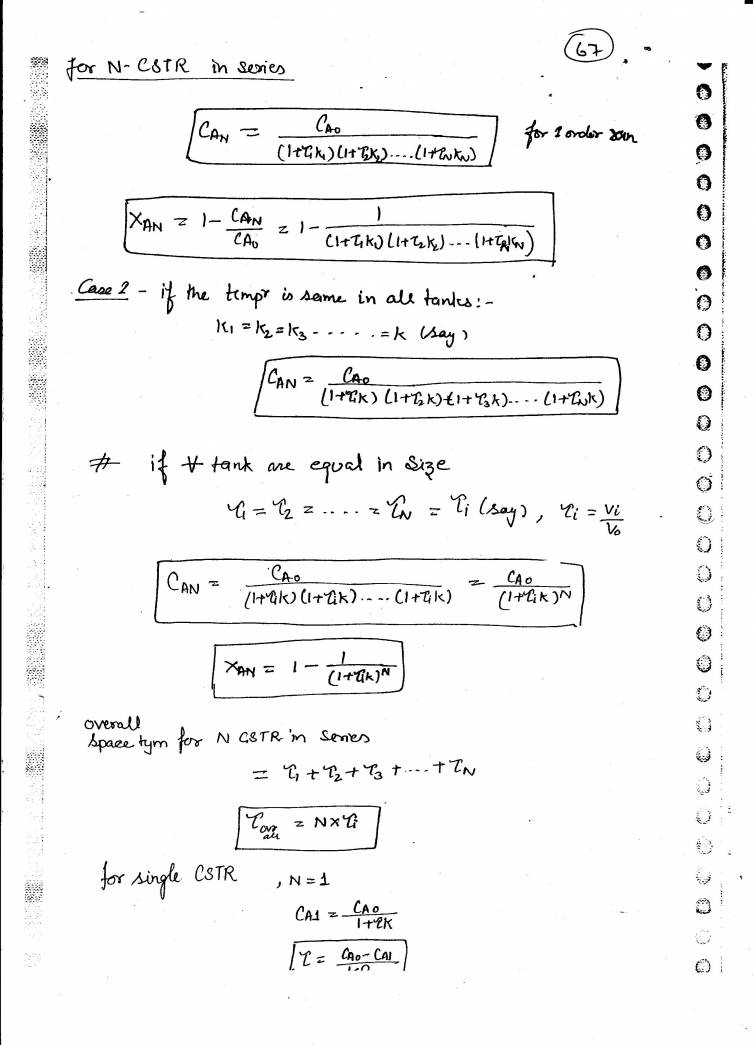 67
for N-CSTR in series
C_AN = C_A0 / (1+τ1k1)(1+τ2k2)....(1+τNkN) for 1 order rxn
X_AN = 1 - C_AN / C_A0 = 1 - 1 / (1+τ1k1)(1+τ2k2)---(1+τNkN)
Case 1 - if the tempr is same in all tanks:-
k1 = k2 = k3 - - - - . = k (say)
C_AN = C_A0 / (1+τ1k)(1+τ2k)(1+τ3k)....(1+τNk)
# if ∀ tank are equal in size
τ1 = τ2 = .... = τN = τi (say), τi = Vi / V0
C_AN = C_A0 / (1+τik)(1+τik)....(1+τik) = C_A0 / (1+τik)^N
X_AN = 1 - 1 / (1+τik)^N
overall
space tym for N CSTR in series
= τ1 + τ2 + τ3 + .... + τN
τ over all = N×τi
for single CSTR , N=1
CA1 = CA0 / 1+τk
τ = CA0-CA1